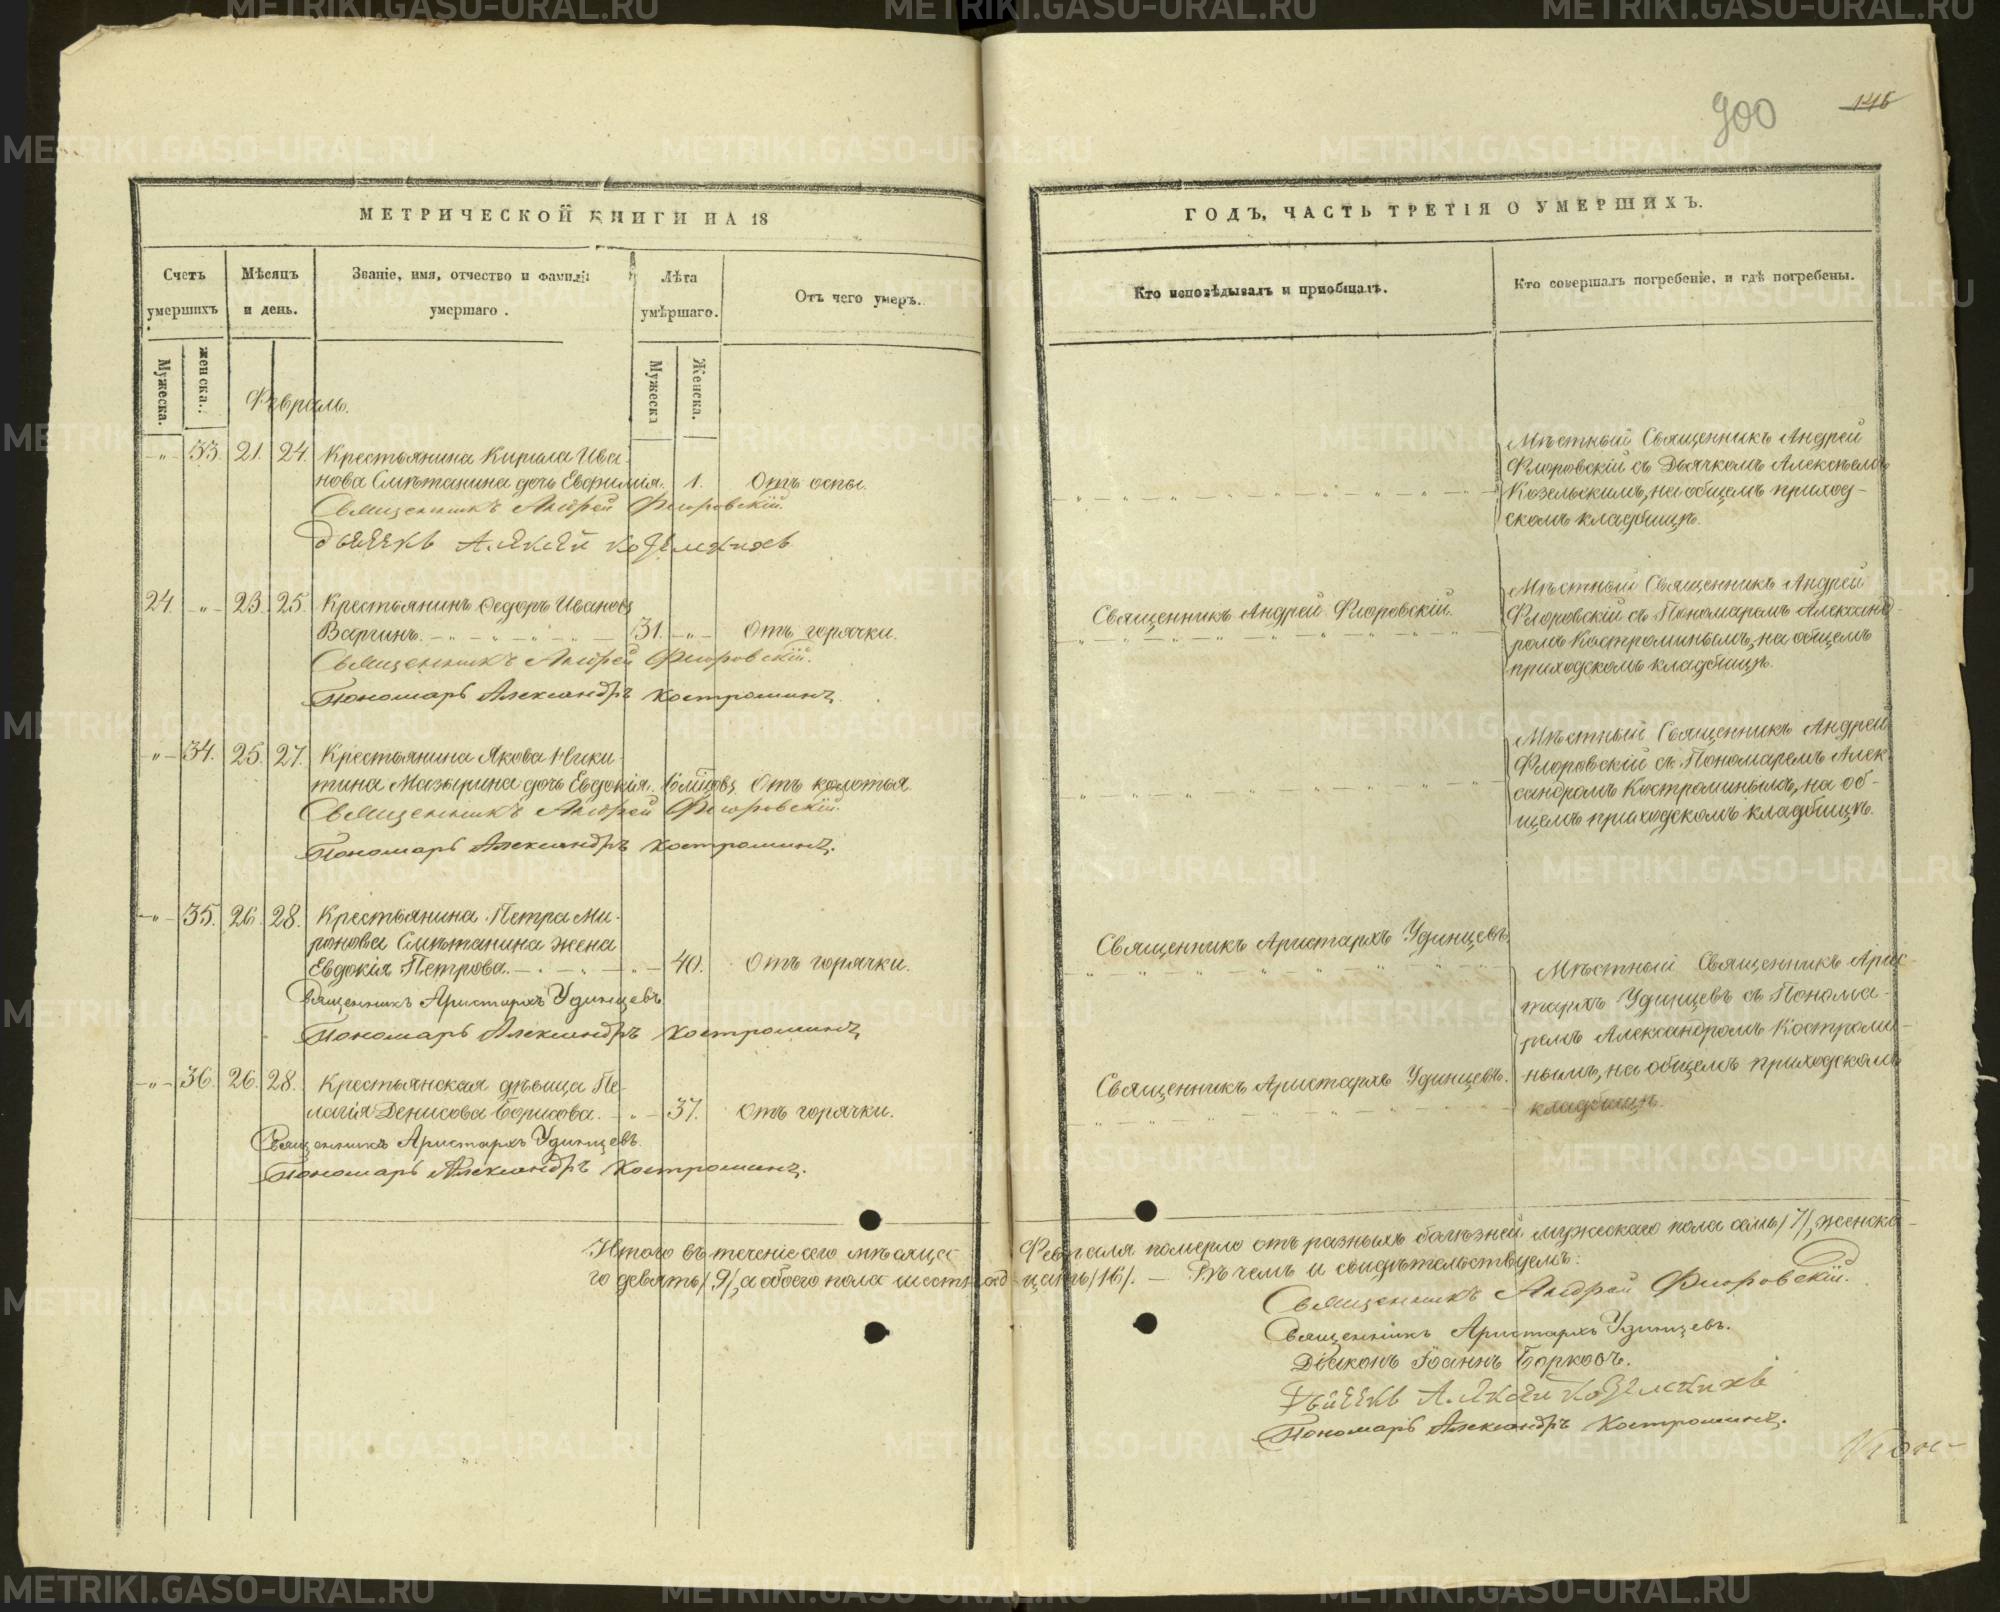 900
146
МЕТРИЧЕСКОЙ КНИГИ НА 18
ГОДЪ, ЧАСТЬ ТРЕТІЯ О УМЕРШИХЪ.
Счетъ умершихъ
Мѣсяцъ и день.
Званіе, имя, отчество и фамилія умершаго.
Лѣта умѣршаго.
Отъ чего умеръ.
Кто исповѣдывалъ и пріобщалъ.
Кто совершалъ погребеніе, и гдѣ погребены.
Мужеска.
женска.
Мужеска
Женска.
Февраль.
-"- 33. 21. 24. Крестьянина Кирила Ива-
нова Смѣтанина дочь Евфимія. 1. Отъ оспы.
Священникъ Андрей Флоровскій.
Дьячекъ Алексей Козельскихъ
Мѣстный Священникъ Андрей
Флоровскій съ Дьячкомъ Алексѣемъ
Козельскимъ, на общемъ приход-
скомъ кладбищѣ.
24. -"- 23. 25. Крестьянинъ Ѳедоръ Ивановъ
Варгинъ. 31. -"- Отъ горячки.
Священникъ Андрей Флоровскій.
Пономарь Александръ Костроминъ.
Священникъ Андрей Флоровскій.
Мѣстный Священникъ Андрей
Флоровскій съ Пономаремъ Александ-
ромъ Костроминымъ, на общемъ
приходскомъ кладбищѣ.
-"- 34. 25. 27. Крестьянина Якова Ники-
тина Мазырина дочь Евдокія. Отъ колотья.
Священникъ Андрей Флоровскій.
Пономарь Александръ Костроминъ.
Мѣстный Священникъ Андрей
Флоровскій съ Пономаремъ Алек-
сандромъ Костроминымъ, на об-
щемъ приходскомъ кладбищѣ.
-"- 35. 26. 28. Крестьянина Петра Ми-
ронова Смѣтанина жена
Евдокія Петрова. 40. Отъ горячки.
Священникъ Аристархъ Удинцевъ.
Пономарь Александръ Костроминъ
Священникъ Аристархъ Удинцевъ.
Мѣстный Священникъ Арис-
тархъ Удинцевъ съ Понома-
ремъ Александромъ Костроми-
нымъ, на общемъ приходскомъ
кладбищѣ.
-"- 36. 26. 28. Крестьянская дѣвица Пе-
лагія Денисова Борисова. 37. Отъ горячки.
Священникъ Аристархъ Удинцевъ.
Пономарь Александръ Костроминъ.
Священникъ Аристархъ Удинцевъ.
Итого въ теченіе сего мѣсяца Февраля померло отъ разныхъ болѣзней мужескаго пола семь /7/, женска-
го девять /9/, а обоего пола шестнадцать /16/. — Въ чемъ и свидѣтельствуемъ:
Священникъ Андрей Флоровскій.
Священникъ Аристархъ Удинцевъ.
Діаконъ Іоаннъ Борковъ.
Дьячекъ Алексей Козельскихъ
Пономарь Александръ Костроминъ.